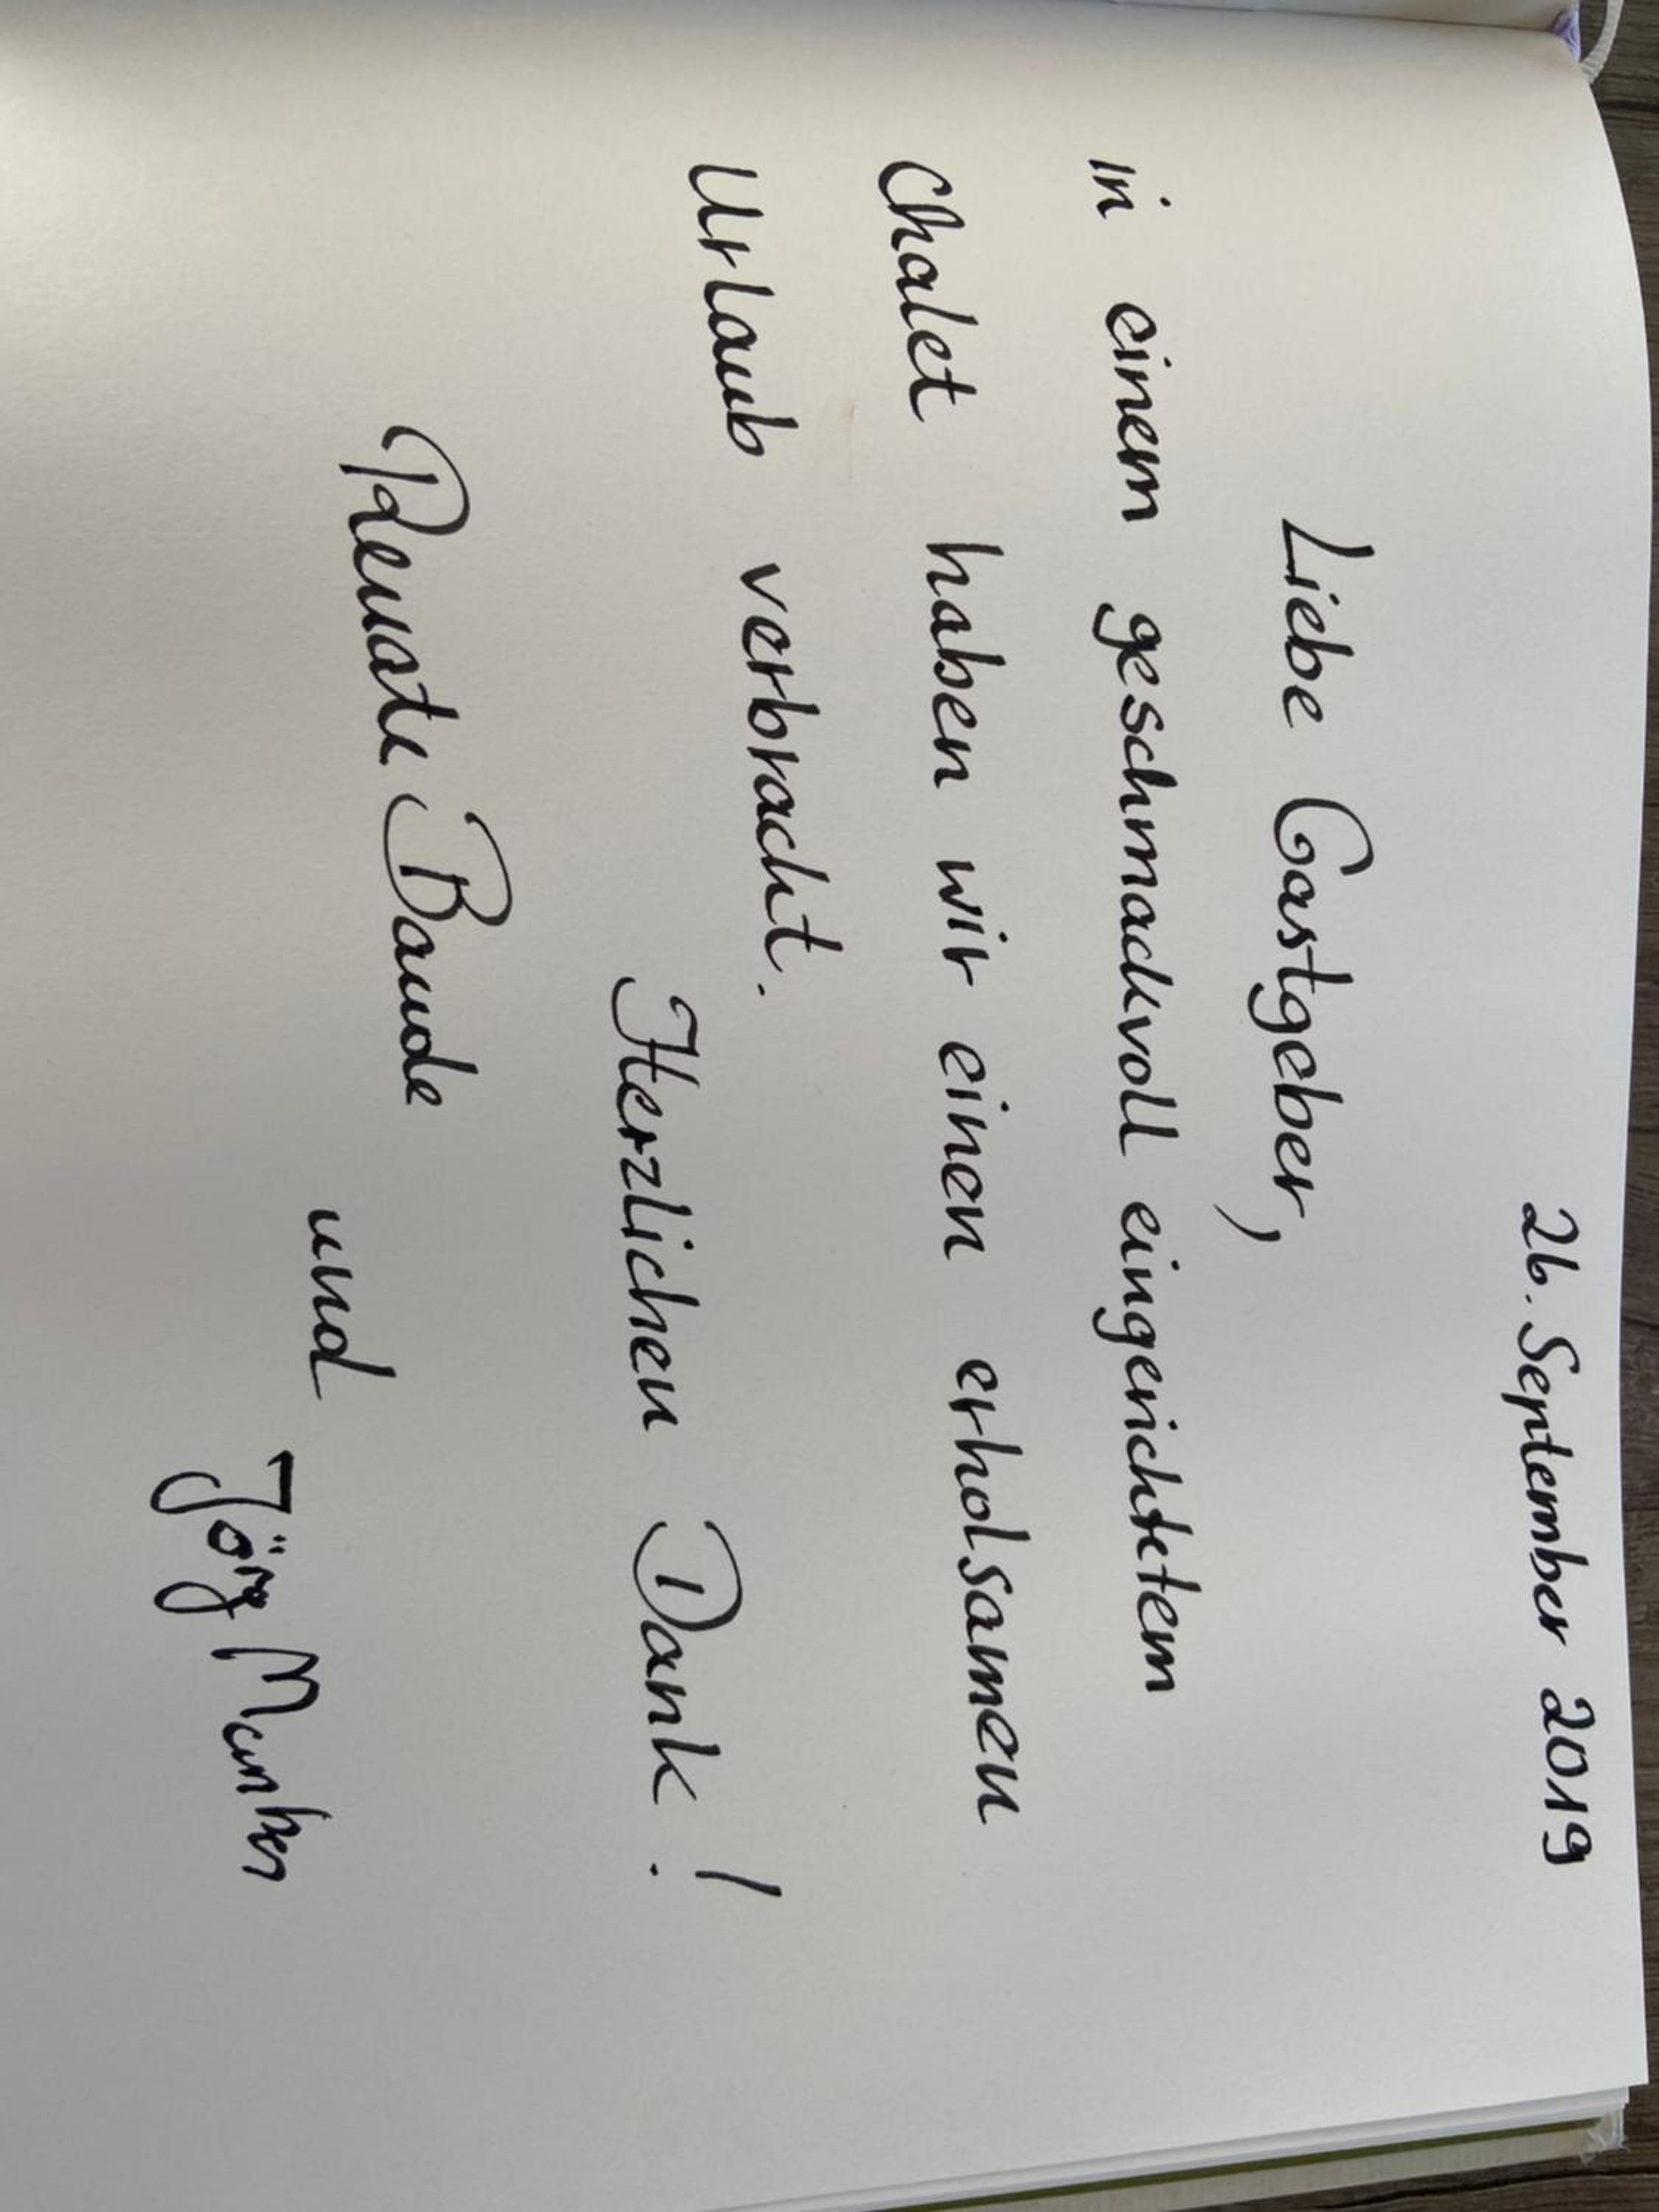 26. September 2019
Liebe Gastgeber,
in einem geschmackvoll eingerichtetem
Chalet haben wir einen erholsamen
Urlaub verbracht.
Herzlichen Dank!
Renate Baude
und Jörg